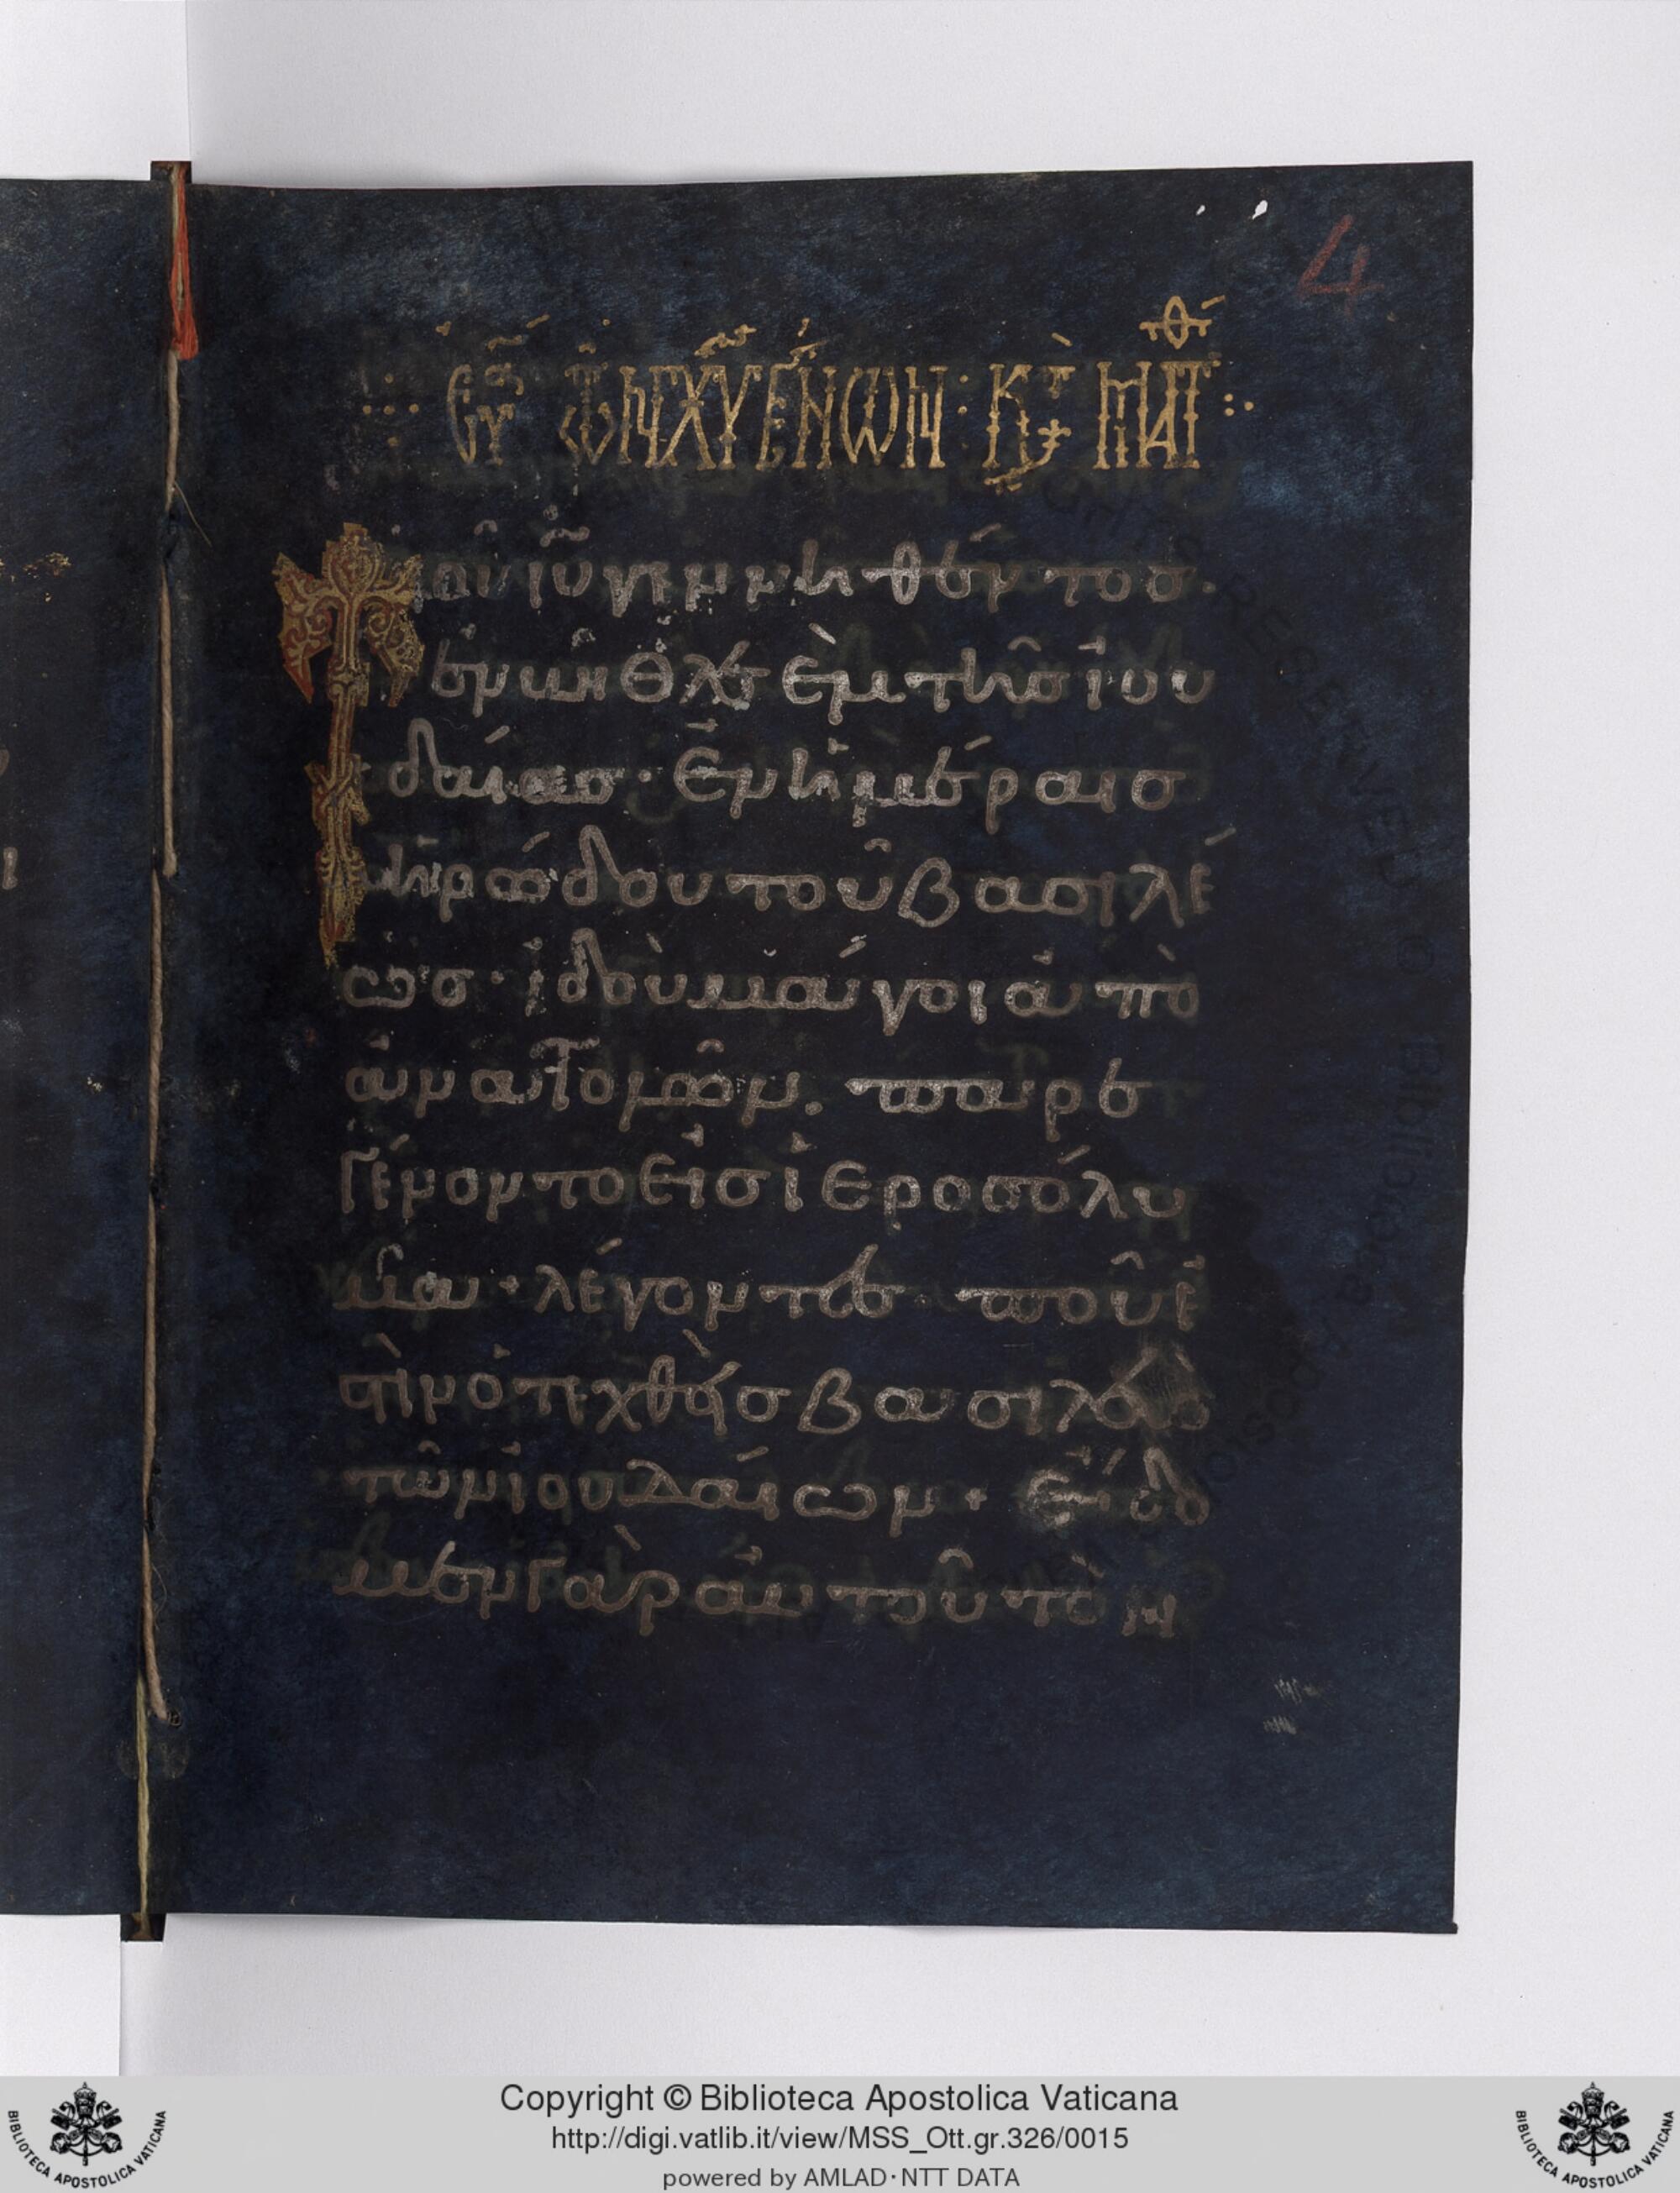 4
Εὐα τῶν Χυ γεννων: Κτ Ματθ:
Τοῦ ιυ γεννηθέντος·
ἐν Βηθλεὲμ τῆς ἰου
δαίας· ἐν ἡμέραις
ἡρώδου τοῦ βασιλέ
ως· ἰδοὺ μάγοι ἀπὸ
ἀνατολῶν. παρε
γένοντο εἰς ἱεροσόλυ
μα· λέγοντες· ποῦ ἐ
στὶν ὁ τεχθεὶς βασιλεὺς
τῶν ἰουδαίων· εἴδο
μεν γὰρ αὐτοῦ τὸν
Copyright © Biblioteca Apostolica Vaticana
http://digi.vatlib.it/view/MSS_Ott.gr.326/0015
powered by AMLAD·NTT DATA
BIBLIOTECA APOSTOLICA VATICANA
BIBLIOTECA APOSTOLICA VATICANA